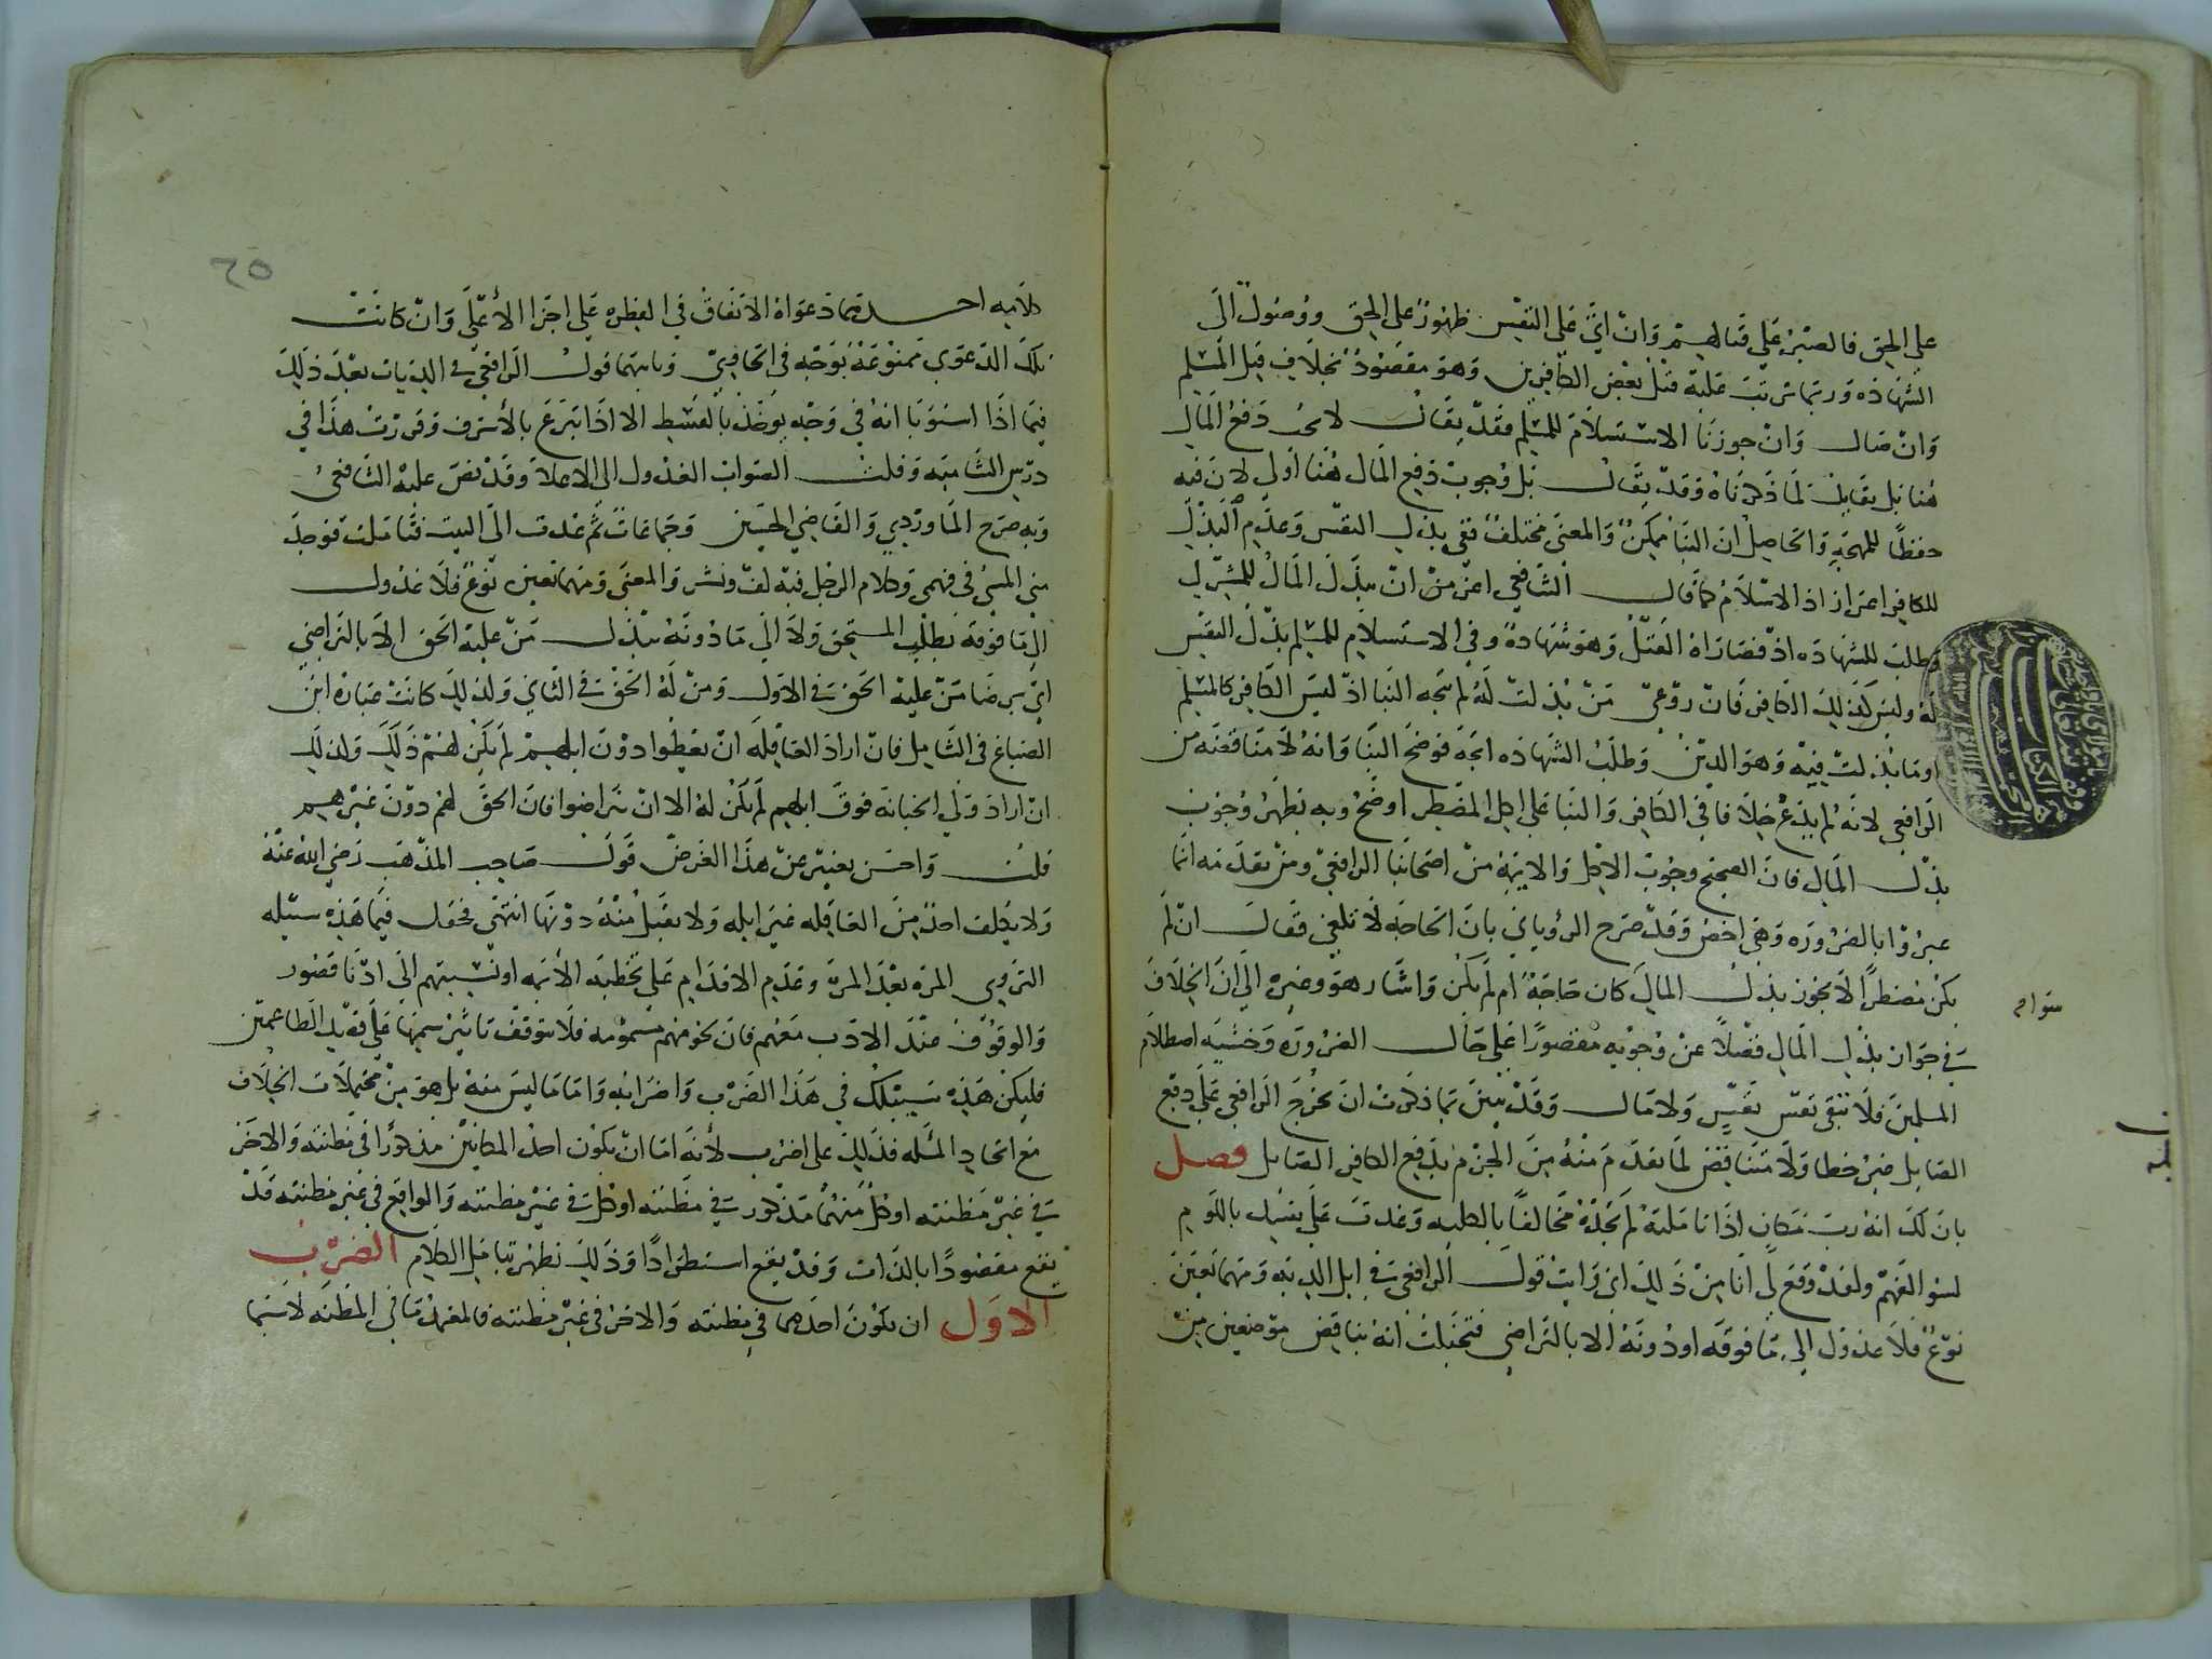 على الحق فالصبر على قتالهم وان اتى على النفس ظهور على الحق ووصول الى
الشهاده وربما ترتب عليه قتل بعض الكافرين وهو مقصود بخلاف قتل المسلم
وان صال وان جوزنا الاستسلام للمسلم فقد يقال لا يجب دفع المال
هنا بل يقابل لما ذكرناه وقد يقال بل وجوب دفع المال هنا اولى لان فيه
حفظا للمهجة والحاصل ان البنا ممكن والمعنى مختلف ففي بذل النفس وعدم البذل
للكافر اعزاز اذ الاسلام كما قال الشافعي اعز من ان يبذل المال للمشرك
وطلب للشهاده اذ قصاراه القتل وهو شهادة وفي الاستسلام للمسلم بذل النفس
له وليس كذلك الكافر فان روعي من بذلت له لم يتجه البنا اذ ليس الكافر كالمسلم
او ما بذلت فيه وهو الدين وطلب الشهاده اتجه فوضح البنا وانه لا مناقضه من
الرافعي لانه لم يدع خلافا في الكافر والبنا على اكل المضطر اوضح وبه يظهر وجوب
بذل المال فان الصحيح وجوب الاكل والاية من اصحابنا الرافعي ومن تقدمه انما
عبروا بالضروره وهي اخص وقد صرح الروياني بان الحاجه لا تلغي فقال ان لم
يكن مضطرا لا يجوز بذل المال كان حاجة ام لم يكن واشار هو وغيره الى ان الخلاف
في جواز بذل المال فضلا عن وجوبه مقصورا على حال الضروره وخشيه اصطلام
المسلمين فلا تبقى نفس نفيس ولا مال وقد تبين بما ذكرت ان تخرج الرافعي على دفع
الصايل غير خطا ولا متناقض لما تقدم منه من الجزم بدفع الكافر الصايل فصل
بان لك انه رب مكان اذا تاملته لم تجده مخالفا بالكليه وعدت على نفسك باللوم
لسو الفهم ولقد وقع لي انا من ذلك اني رايت قول الرافعي في ابل الديه ومهما تعين
نوع فلا عدول الى ما فوقه او دونه الا بالتراضي فتخيلت انه يناقض موضعين من
سوام
٦٥
كلاميه احدهما دعواه الاتفاق في الفطره على اجزا الاعلى وان كانت
تلك الدعوى ممنوعة بوجه في الحاوي وثانيهما قول الرافعي في الديات بعد ذلك
فيما اذا استويا انه في وجه يوخذ بالقسط الا اذا تبرع بالاشرف وقررت هذا في
درس الشاميه وقلت الصواب العدول الى الاعلا وقد نص عليه الشافعي
وبه صرح الماوردي والقاضي الحسين وجماعات ثم عدت الى البيت فتاملت فوجد
فلا عدول
الى ما فوقه بطلب المستحق ولا الى ما دونه ببذل من عليه الحق الا بالتراضي
اي برضا من عليه الحق في الاول ومن له الحق في الثاني ولذلك كانت عبارة ابن
الصباغ في الشامل فان اراد العاقله ان يعطوا دون ابلهم لم يكن لهم ذلك ولذلك
ان اراد ولي الجنايه فوق ابلهم لم يكن له الا ان تراضوا فان الحق لهم دون غيرهم
قلت واحسن تعبير عن هذا الغرض قول صاحب المذهب رضي الله عنه
ولا يكلف احد من العاقله غير ابله ولا يقبل منه دونها انتهى فحول فيما هذه سبيله
التروي المرة بعد المرة وعدم الاقدام على تخطيه الايمه او نسبتهم الى ادنا قصور
والوقوف عند الادب معهم فان لحومهم مسمومه فلا يتوقف تاثير سمها على قربك الطاعمين
فليكن هذه سبيلك في هذا الضرب واضرابه واما ما ليس منه بل هو من محتملات الخلاف
مع اتحاد المسله فذلك على اضرب لانه اما ان يكون احد المكانين مذكورا في مظنته والاخر
في غير مظنته او كل منهما مذكور في مظنته او كل في غير مظنته والواقع في غير مظنته قد
يقع مقصودا بالذات وقد يقع استطرادا وذلك يظهر بتامل الكلام الضرب
الاول ان يكون احدهما في مظنته والاخر في غير مظنته فالمعتمد ما في المظنه لا سيما